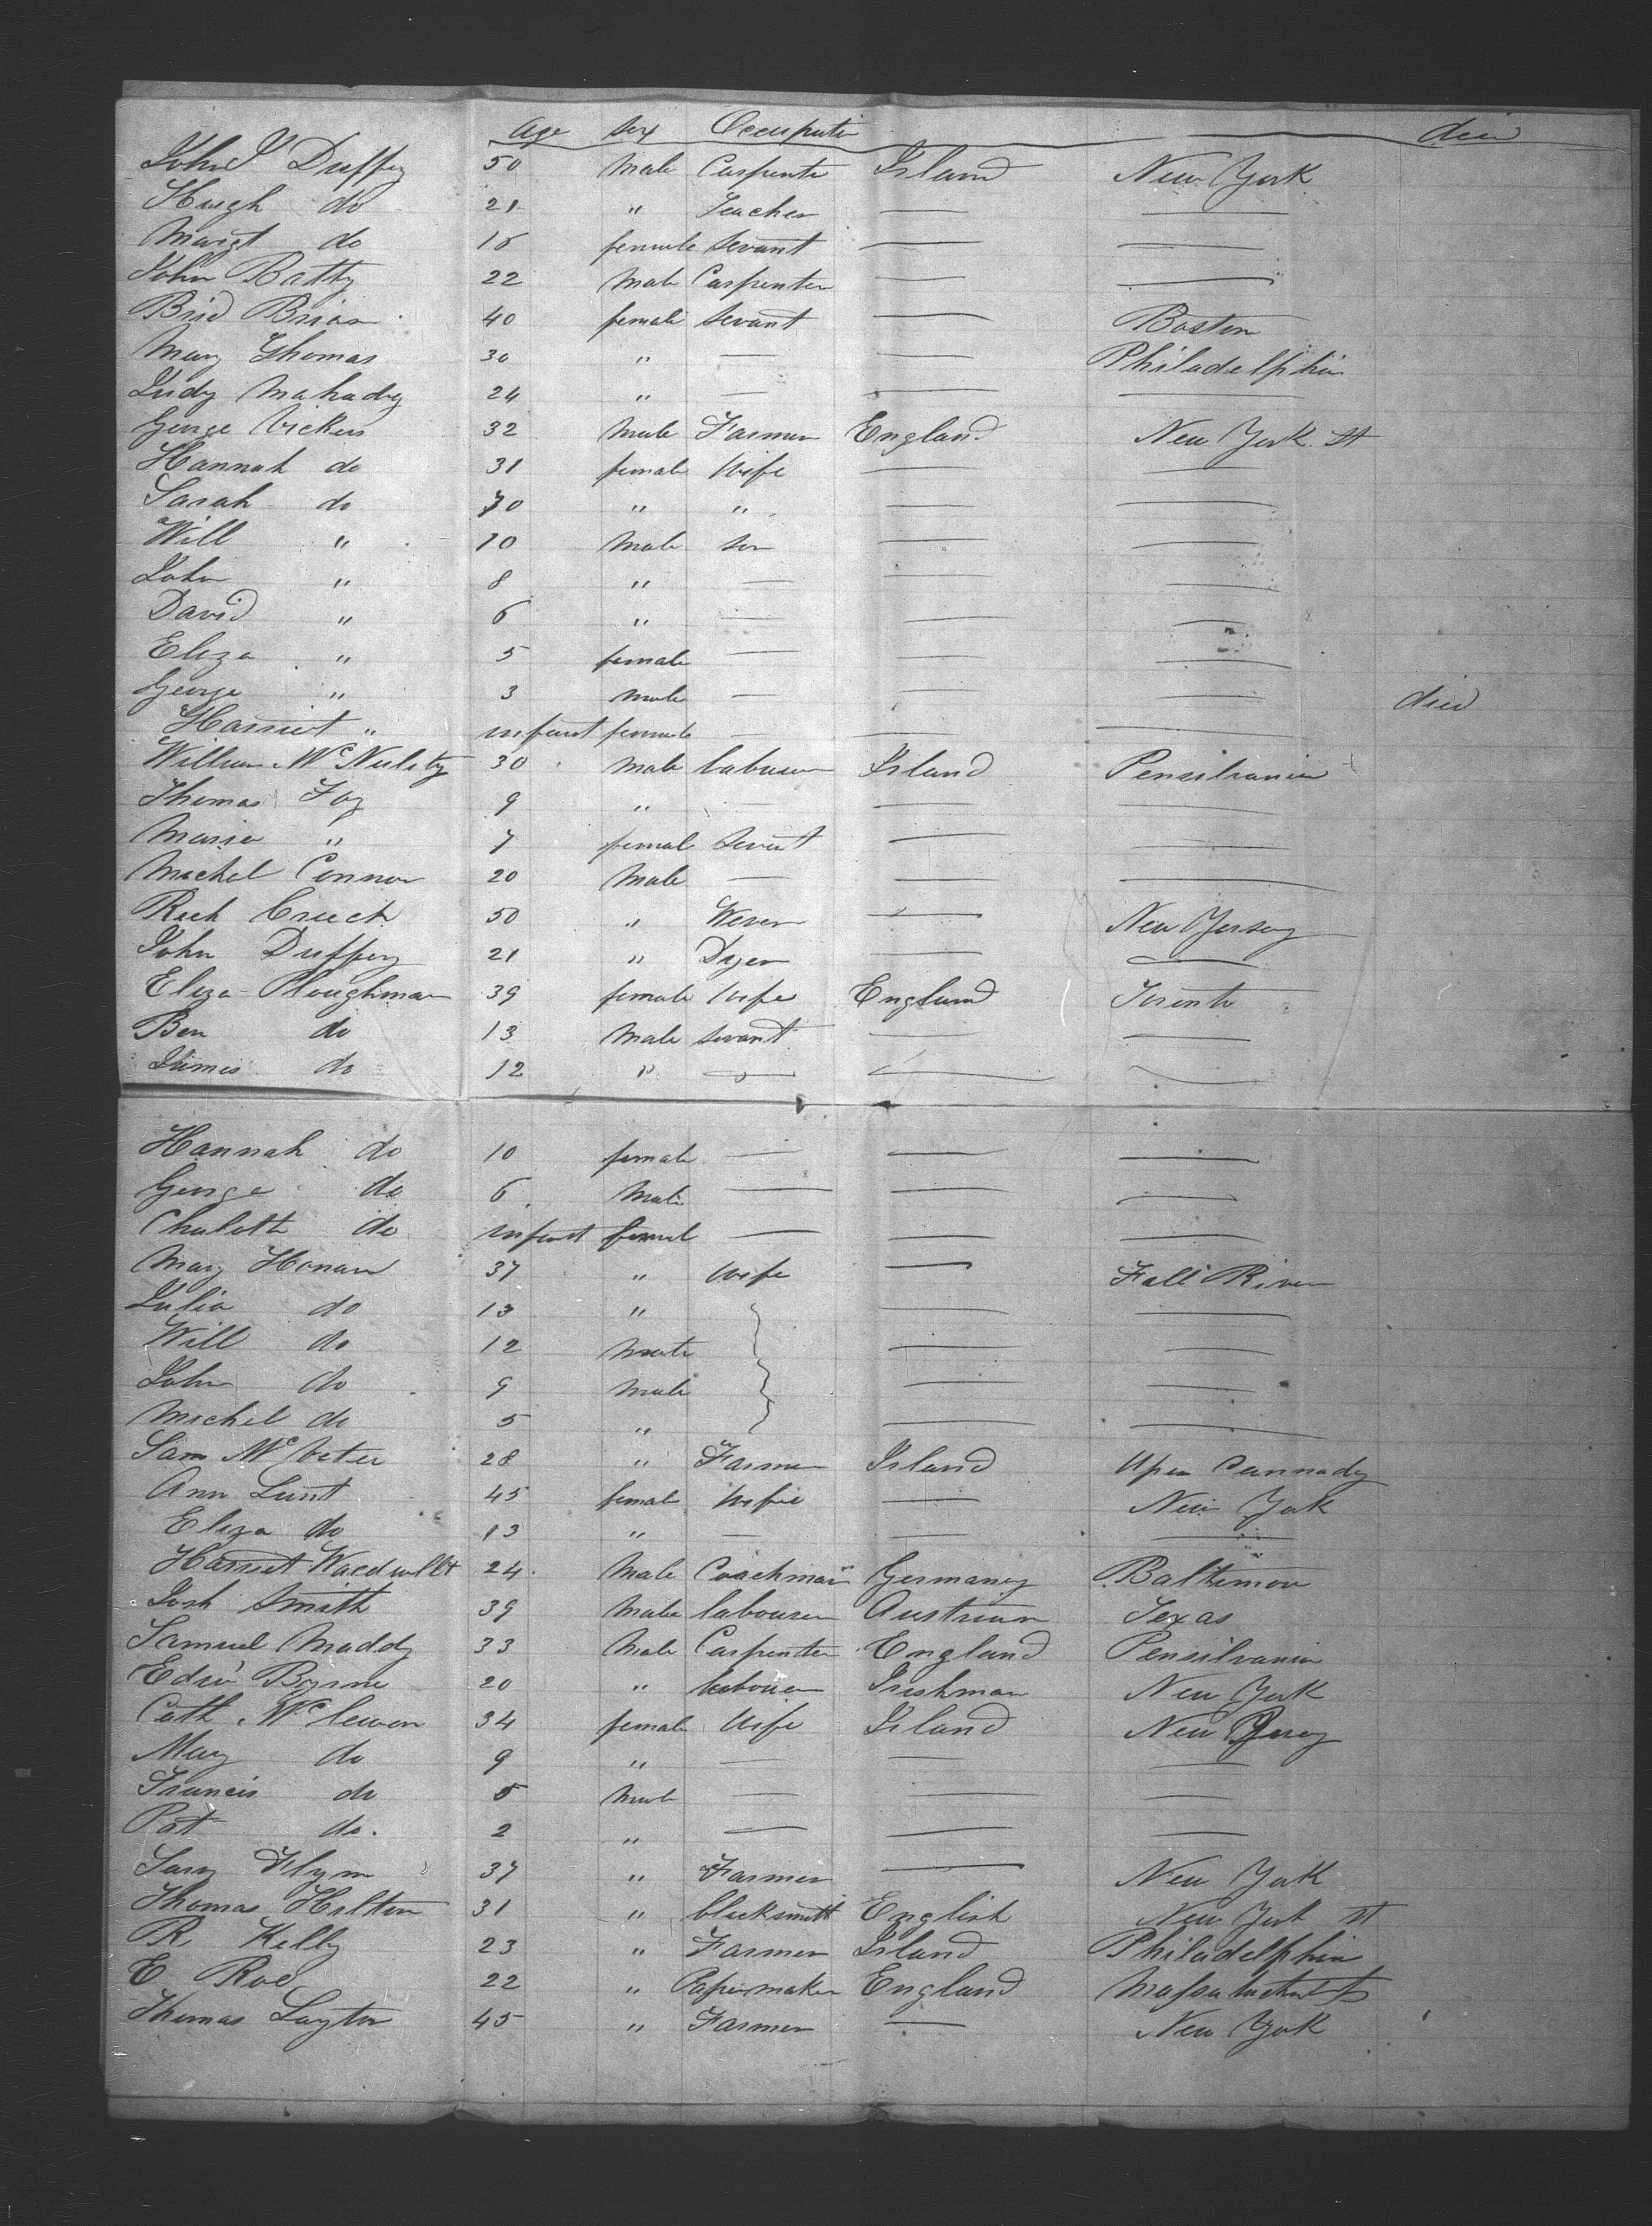 age sex Occupation died
John Duffey 50 Male Carpenter Ireland New York
Hugh do 21 " Teacher — —
Margt do 16 female Servant — —
John Batty 22 Male Carpenter — —
Brid Brian 40 female Servant — Boston
Mary Thomas 30 " — — Philadelphia
Judy Mahady 24 " — — —
George Vickers 32 Male Farmer England New York St
Hannah do 31 female Wife — —
Sarah do 70 " " — —
Will " 10 Male son — —
John " 8 " — — —
David " 6 " — — —
Eliza " 5 female — — —
George " 3 male — — — died
Harriet " infant female — — —
William McNulety 30 Male labourer Irland Pensilvania
Thomas Foy 9 " — —
Maria " 7 female Servant — —
Michel Connor 20 Male — — —
Rich 50 " Wever — New Yersey
John Duffey 21 " Dyer — —
Eliza Ploughman 39 female Wife England Toronto
Ben do 13 Male servant — —
James do 12 " — — —
Hannah do 10 female — — —
George do 6 Male — — —
Charlotte do infant femal — — —
Mary Honan 37 " Wife — Fall River
Julia do 13 " — —
Will do 12 male — —
John do 9 Male — —
Michel do 5 " — —
Sam 28 " Farmer Irland Upper Cannady
Ann Lunt 45 female Wife — New York
Eliza do 13 " — — —
24 Male Coachman Germany Baltimore
Josh Smith 39 Male labourer Austrian Texas
Samuel Maddy 33 Male Carpenter England Pensilvania
Edw Byrne 20 " labourer Irishman New York
Cath 34 female Wife Irland New Jersey
Mary do 9 " — — —
Francis do 5 Male — — —
Pat do. 2 " — — —
Flyn 37 " Farmer — New York
Thomas Hilton 31 " blacksmith English New York St
R. Kelly 23 " Farmer Irland Philadelphia
E Roe 22 " Papermaker England Massachusetts
Thomas Layton 45 " Farmer — New York